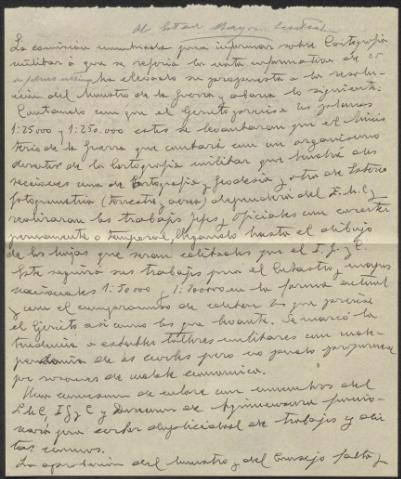 Al Estado Mayor Central
La comisión nombrada para informar sobre Cartografía
militar a que se refería la nota informativa de 25
ha elevado su propuesta a la resolu-
ción del Ministro de la Guerra y abarca lo siguiente:
Contando con que el Ejército precisa las
1:25000 y 1:250.000 estos se levantaran por el Minis
terio de la Guerra que contará con un organismo
director de la Cartografía militar que tendrá dos
secciones una de Cartografía y Geodesia y otra de
fotogrametría (terrestre y aérea) dependerá del E.M.C. y
realizaran los trabajos Jefes y Oficiales con caracter
permanente o temporal, llegando hasta el dibujo
de las hojas que seran editadas por el I. G. y C.
Este seguirá sus trabajos para el Catastro y mapas
nacionales 1:50000 y en la forma actual
y con el compromiso de editar las que precise
el Ejército asi como las que levante. Se marcó la
tendencia a establecer talleres militares con
de las Cortes pero no puede
por razones de caracter económico.
Una comisión de enlace con miembros del
E.M.C, I G y C y funcio-
nará para evitar duplicidad de trabajos y
comunes.
La aprobación del Ministro y del Consejo falta y